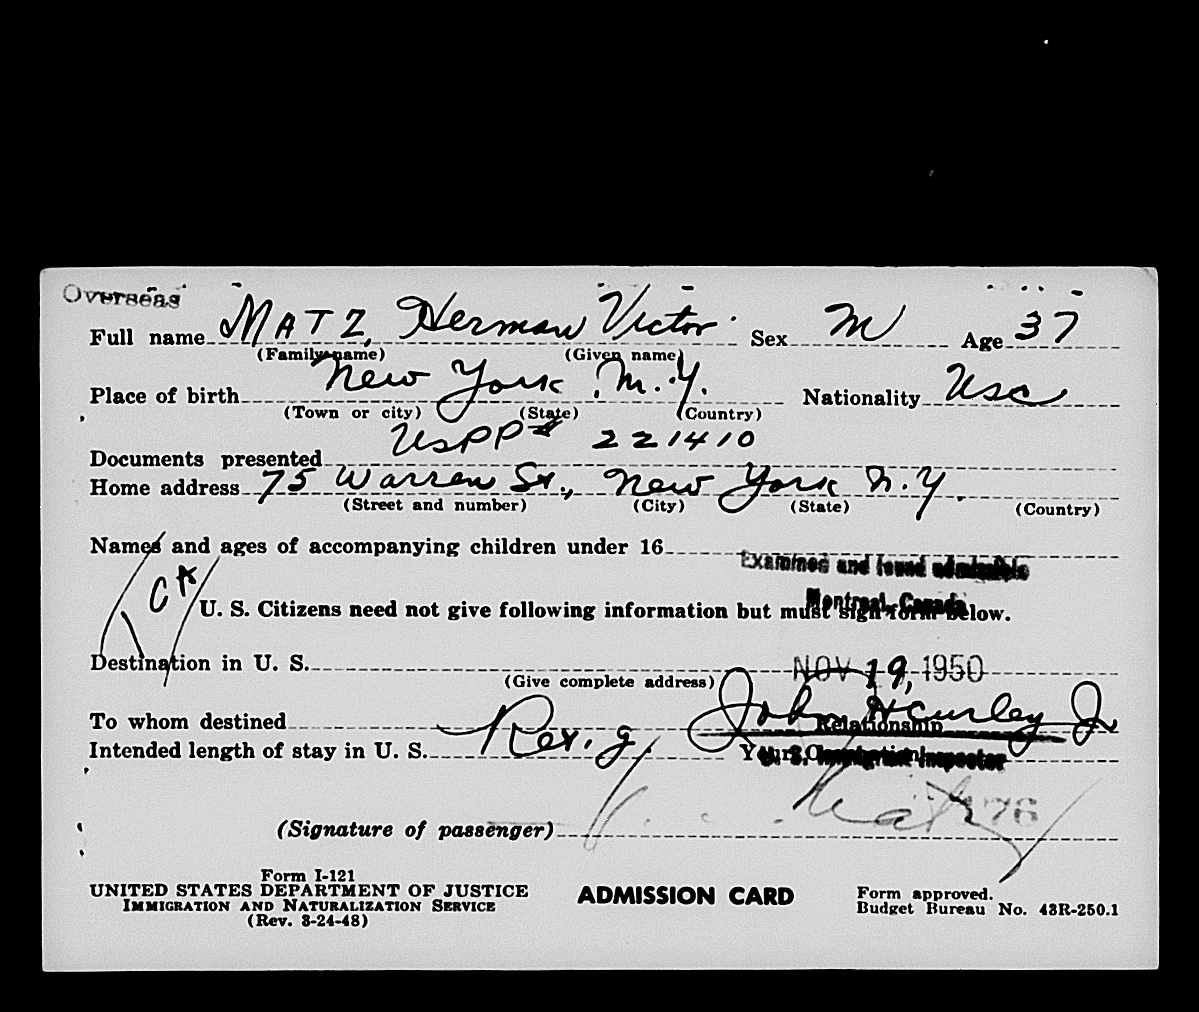 Overseas
Full name MATZ, Herman Victor Sex M Age 37
(Family name) (Given name)
Place of birth New York N.Y. Nationality USC
(Town or city) (State) (Country)
Documents presented USPP# 221410
Home address 75 Warren St., New York N.Y.
(Street and number) (City) (State) (Country)
Names and ages of accompanying children under 16
Examined and found admissible
Montreal, Canada
U. S. Citizens need not give following information but must sign form below.
Destination in U. S. NOV 19, 1950
(Give complete address)
To whom destined Relationship
Intended length of stay in U. S.
U. S. Immigrant Inspector
Matz
76
(Signature of passenger)
Form I-121
UNITED STATES DEPARTMENT OF JUSTICE
IMMIGRATION AND NATURALIZATION SERVICE
(Rev. 3-24-48)
ADMISSION CARD
Form approved.
Budget Bureau No. 43R-250.1